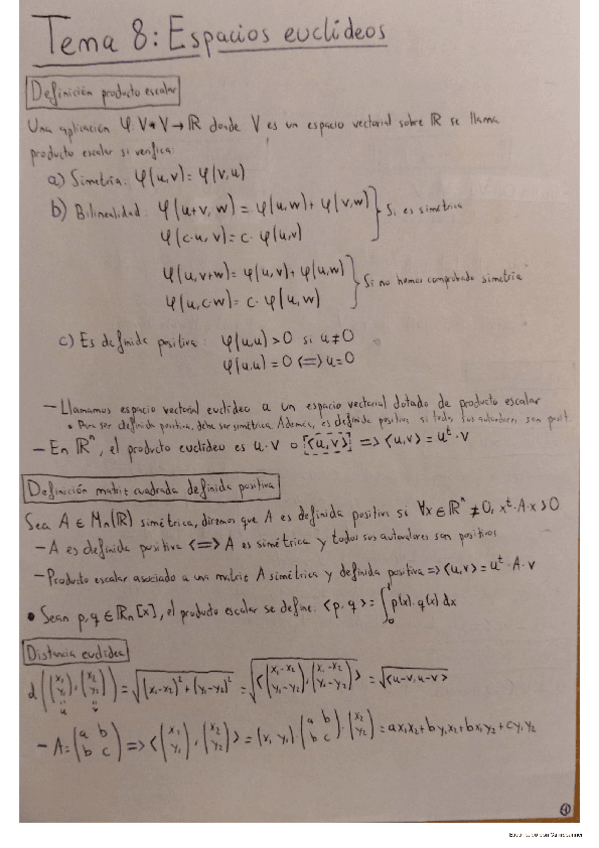 Tema 8: Espacios euclídeos
Definición producto escalar
Una aplicación φ: V×V → ℝ donde V es un espacio vectorial sobre ℝ se llama
producto escalar si verifica:
a) Simetría: φ(u,v) = φ(v,u)
b) Bilinealidad: φ(u+v, w) = φ(u,w) + φ(v,w) } Si es simétrica
φ(c·u, v) = c · φ(u,v)
φ(u, v+w) = φ(u,v) + φ(u,w) } Si no hemos comprobado simetría
φ(u, c·w) = c · φ(u,w)
c) Es definida positiva: φ(u,u) > 0 si u ≠ 0
φ(u,u) = 0 <=> u = 0
— Llamamos espacio vectorial euclídeo a un espacio vectorial dotado de producto escalar
• Para ser definida positiva, debe ser simétrica. Además, es definida positiva si todos sus autovalores son posit.
— En ℝⁿ, el producto euclídeo es u·v o <u,v> => <u,v> = uᵗ·v
Definición matriz cuadrada definida positiva
Sea A ∈ Mn(ℝ) simétrica, diremos que A es definida positiva si ∀x ∈ ℝⁿ ≠ 0, xᵗ·A·x > 0
— A es definida positiva <=> A es simétrica y todos sus autovalores son positivos
— Producto escalar asociado a una matriz A simétrica y definida positiva => <u,v> = uᵗ·A·v
• Sean p, q ∈ ℝn[x], el producto escalar se define: <p·q> = ∫₀¹ p(x)·q(x) dx
Distancia euclídea
d((x₁ y₁), (x₂ y₂)) = √((x₁-x₂)² + (y₁-y₂)²) = √<(x₁-x₂ y₁-y₂), (x₁-x₂ y₁-y₂)> = √<u-v, u-v>
u v
— A = (a b b c) => <(x₁ y₁), (x₂ y₂)> = (x₁ y₁)·(a b b c)·(x₂ y₂) = ax₁x₂ + by₁x₂ + bx₁y₂ + cy₁y₂
1